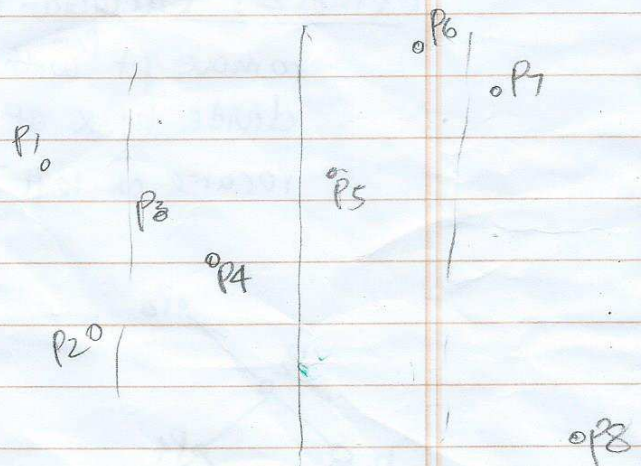 P6
P7
P1
P5
P3
P4
P2
P8